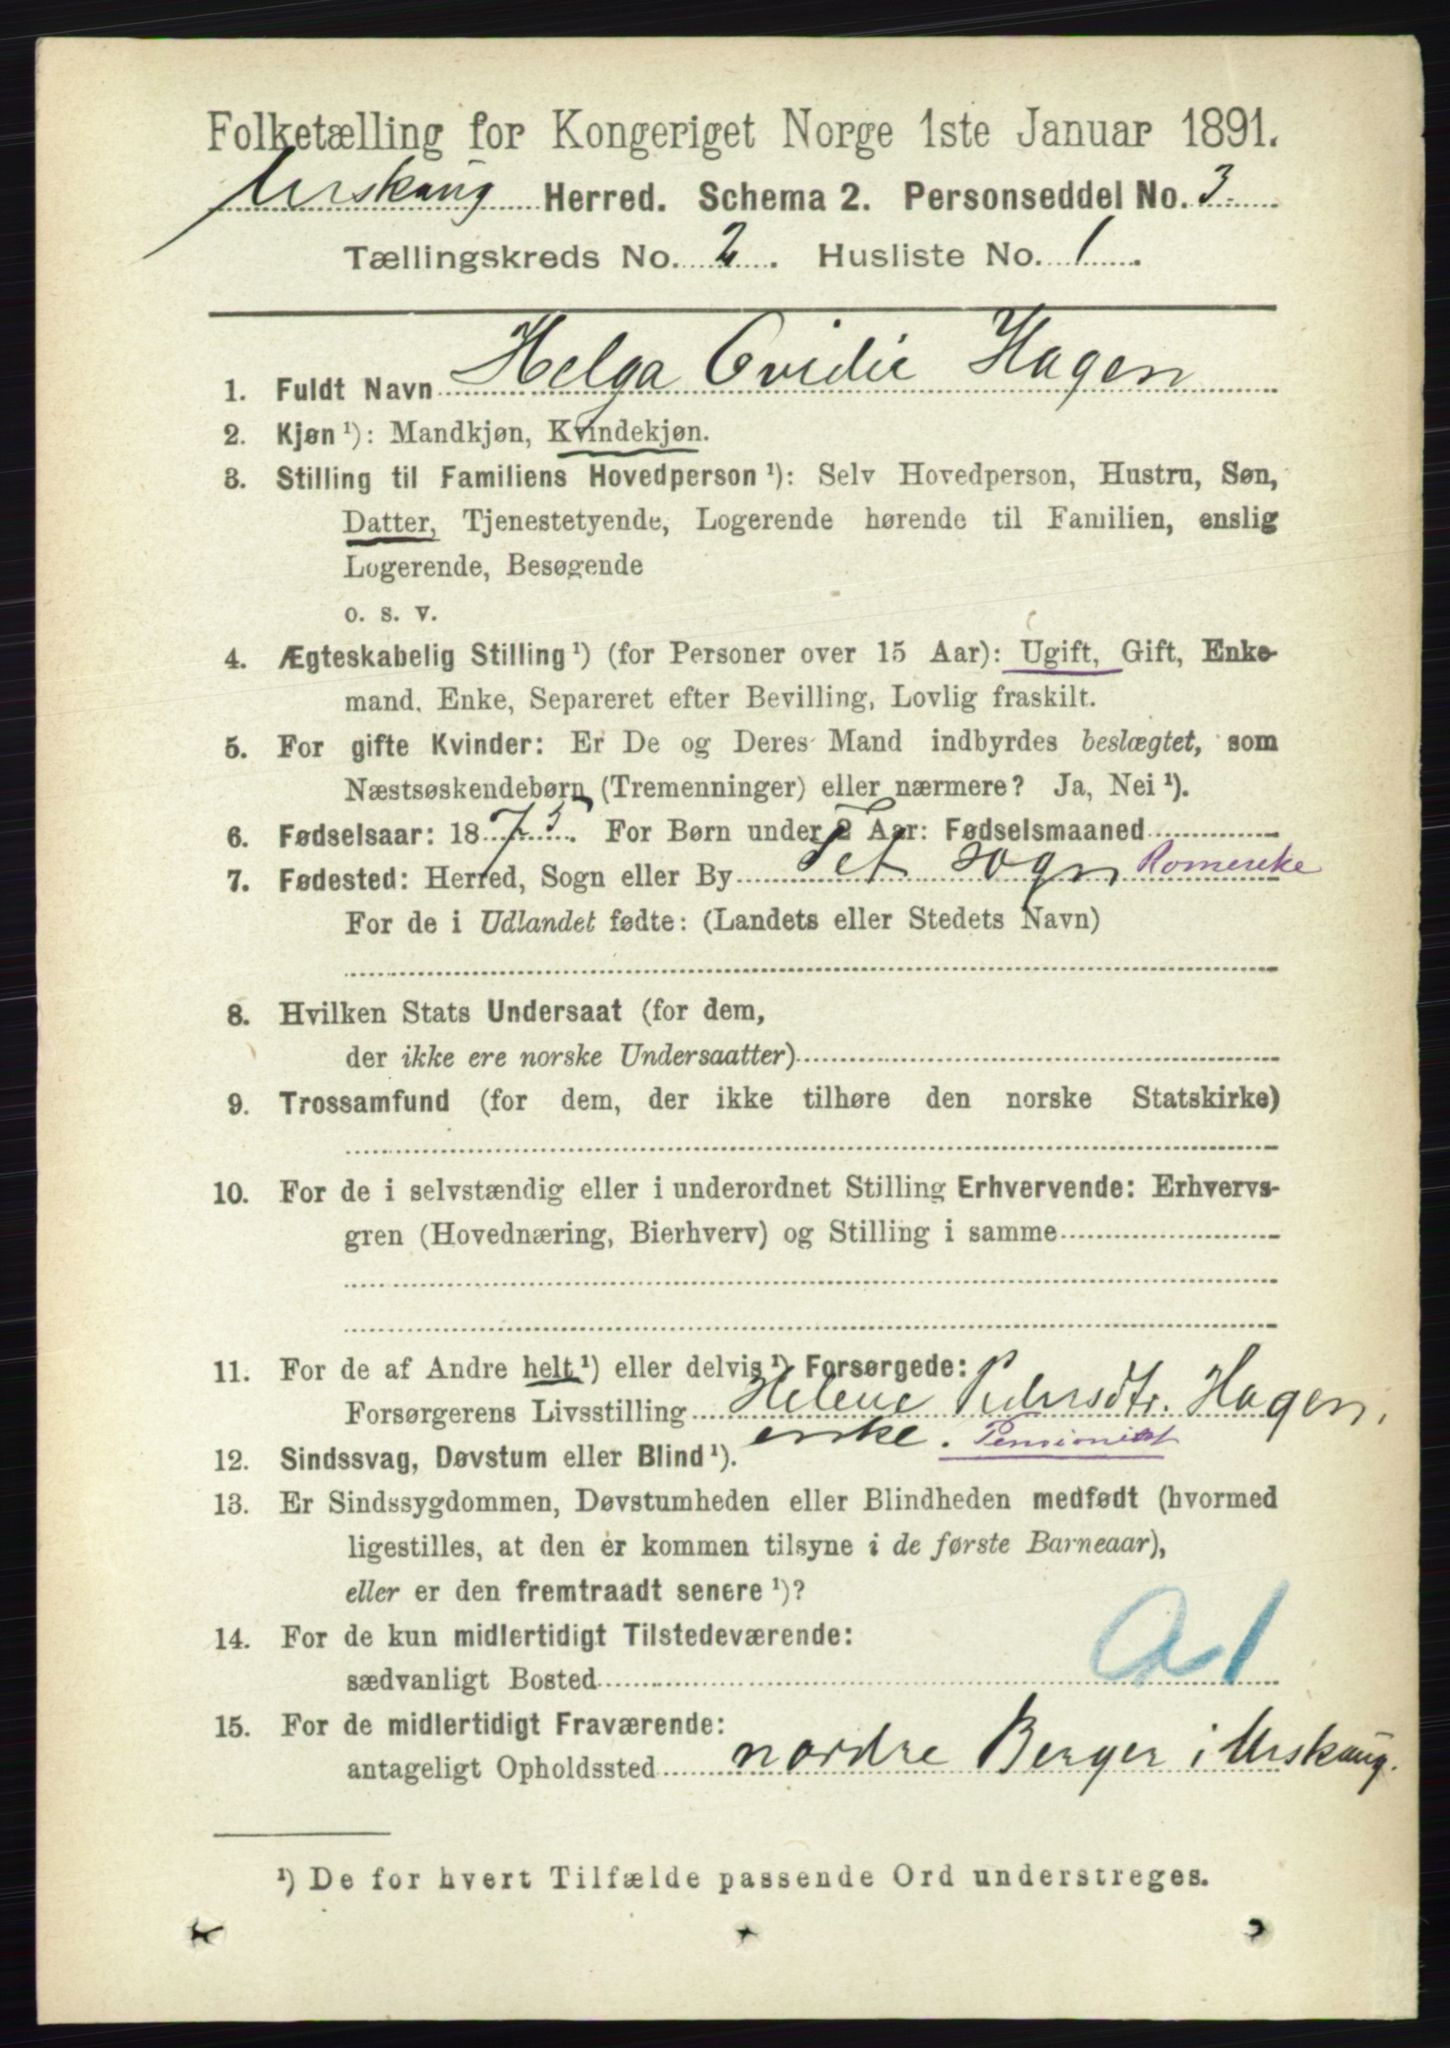 Folketælling for Kongeriget Norge 1ste Januar 1891.
Urskoug Herred. Schema 2. Personseddel No. 3
Tællingskreds No. 2. Husliste No. 1.
1. Fuldt Navn Helga Ovidie Hagen
2. Kjøn ¹): Mandkjøn, Kvindekjøn.
3. Stilling til Familiens Hovedperson ¹): Selv Hovedperson, Hustru, Søn,
Datter, Tjenestetyende, Logerende hørende til Familien, enslig
Logerende, Besøgende
o. s. v.
4. Ægteskabelig Stilling ¹) (for Personer over 15 Aar): Ugift, Gift, Enke-
mand, Enke, Separeret efter Bevilling, Lovlig fraskilt.
5. For gifte Kvinder: Er De og Deres Mand indbyrdes beslægtet, som
Næstsøskendebørn (Tremenninger) eller nærmere? Ja, Nei ¹).
6. Fødselsaar: 1875. For Børn under 2 Aar: Fødselsmaaned
7. Fødested: Herred, Sogn eller By sogn Romereke
For de i Udlandet fødte: (Landets eller Stedets Navn)
8. Hvilken Stats Undersaat (for dem,
der ikke ere norske Undersaatter)
9. Trossamfund (for dem, der ikke tilhøre den norske Statskirke)
10. For de i selvstændig eller i underordnet Stilling Erhvervende: Erhvervs-
gren (Hovednæring, Bierhverv) og Stilling i samme
11. For de af Andre helt ¹) eller delvis ¹) Forsørgede:
Forsørgerens Livsstilling Helene Pedersdtr. Hagen,
enke. Pensionist
12. Sindssvag, Døvstum eller Blind ¹).
13. Er Sindssygdommen, Døvstumheden eller Blindheden medfødt (hvormed
ligestilles, at den er kommen tilsyne i de første Barneaar),
eller er den fremtraadt senere ¹)?
14. For de kun midlertidigt Tilstedeværende:
sædvanligt Bosted
15. For de midlertidigt Fraværende:
antageligt Opholdssted nordre Berger i Urskoug.
¹) De for hvert Tilfælde passende Ord understreges.